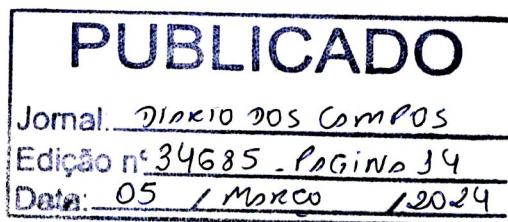 PUBLICADO
Jornal. DIARIO DOS CAMPOS
Edição nº 34685 - PAGINA 14
Data: 05 / MARCO / 2024